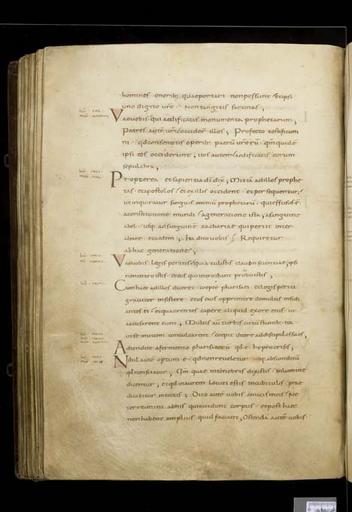 homines oneribus quae portari non possunt & ipsi
uno digito uro non tangitis sarcinas ;
Vae uobis qui aedificatis monumenta prophetarum ;
Patres autē uri occider̄ illos ; Profecto testificam
ni qđ consentitis operib; patrū uroꝝ ; qm̄ quidē
ipsi eos occiderunt ; uos autē aedificatis eorum
sepulchra ;
Propterea et sapientia dī dix̄ ; Mittā ad illos prophe
tas et apostolos / et ex illis occident & persequentur ;
ut inquiratur sanguis omniū prophetarū qui effusus ē
a constitutione mundi a generatione ista ; a sanguine
abel usq; ad sanguinē zachariae qui periit inter
altare et aedem ; Ita dico uobis Requiretur
ab hac generatione ;
Vae uobis legis peritis quia tulistis clauem scientiae ; ipsi
non introistis et eos qui introibant prohibuistis ;
Cum haec ad illos diceret coeper̄ pharisaei et legis periti
grauiter insistere et os eius opprimere de multis insidi
antes ei et quaerentes capere aliquid ex ore eius ut
accusarent eum ; Multis autē turbis circūstantib; ita
ut se inuicem conculcarent coepit dicere ad discipulos suos ,
Adtendite a fermento pharisaeorū qđ ē hypocrisis ;
Nihil autē optum ē qđ non reueletur neq; absconditum
qđ non sciatur ; Qm̄ quae in tenebris dixistis in lumine
dicentur ; et qđ in aurem locuti estis in cubiculis prae
dicabitur in tectis ; Dico autē uobis amicis meis ne
terreamini ab his qui occidunt corpus et post haec
non habent amplius quid faciant ; Ostendā autē uobis